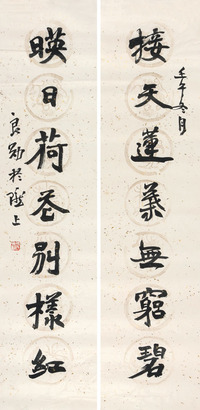 壬午冬月
接天蓮葉無窮碧
暎日荷花別樣紅
良於隴上